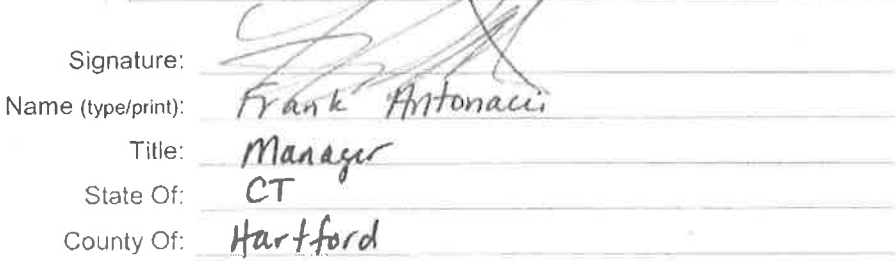 Signature:
Name (type/print): Frank Antonacci
Title: Manager
State Of: CT
County Of: Hartford